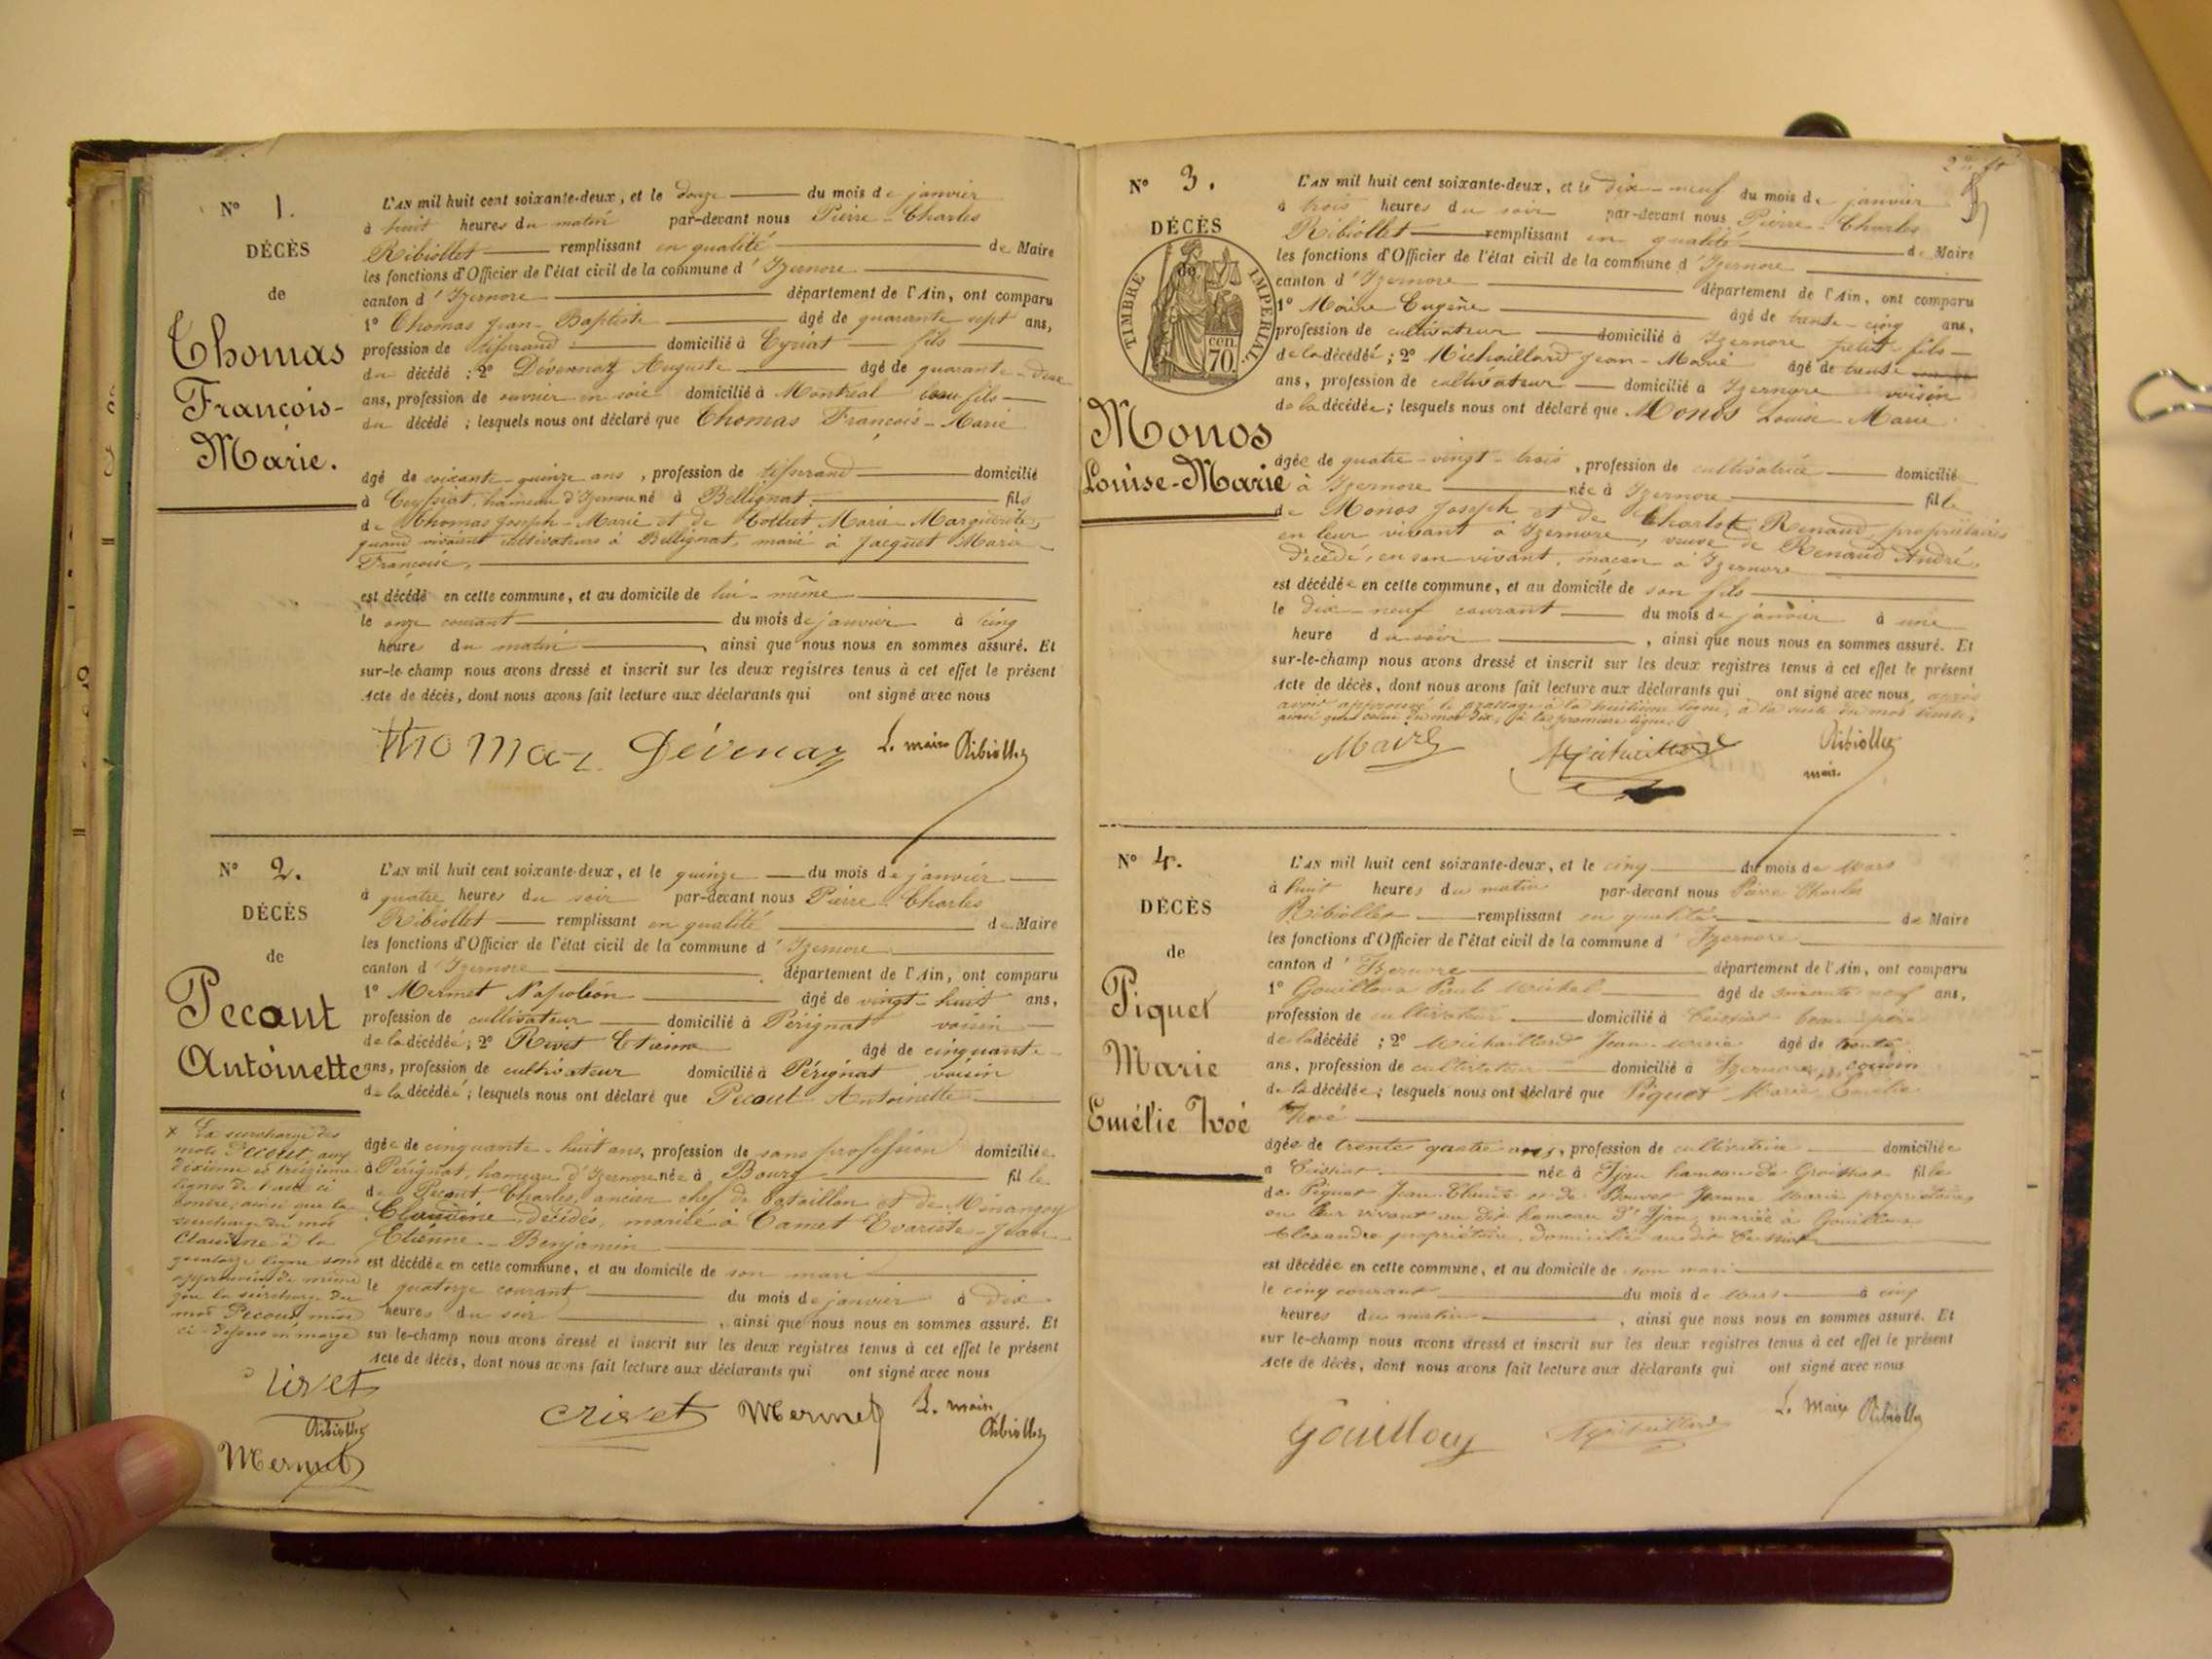 N° 1.
DÉCÈS
de
Thomas
François-
Marie.
L'AN mil huit cent soixante-deux, et le douze du mois de janvier
à huit heures du matin par-devant nous Pierre-Charles
Ribiollet remplissant en qualité de Maire
les fonctions d'Officier de l'état civil de la commune d'Izernore
canton d'Izernore département de l'Ain, ont comparu
1° Thomas Jean-Baptiste âgé de quarante sept ans,
profession de tisserand domicilié à Eyriat fils
du décédé ; 2° Dévernay Auguste âgé de quarante-deux
ans, profession de ouvrier en soie domicilié à Montréal beau fils
du décédé ; lesquels nous ont déclaré que Thomas François-Marie
âgé de soixante-quinze ans, profession de tisserand domicilié
à Ceyssiat, hameau d'Izernore né à Bellignat fils
de Thomas Joseph-Marie et de Marie Marguerite,
quand vivaient cultivateurs à Bellignat, marié à Jacquet Marie-
Françoise,
est décédé en cette commune, et au domicile de lui-même
le onze courant du mois de janvier à cinq
heures du matin, ainsi que nous nous en sommes assuré. Et
sur-le-champ nous avons dressé et inscrit sur les deux registres tenus à cet effet le présent
Acte de décès, dont nous avons fait lecture aux déclarants qui ont signé avec nous
Thomas Dévernay L. maire Ribiollet
N° 2.
DÉCÈS
de
Pecaut
Antoinette
L'AN mil huit cent soixante-deux, et le quinze du mois de janvier
à quatre heures du soir par-devant nous Pierre-Charles
Ribiollet remplissant en qualité de Maire
les fonctions d'Officier de l'état civil de la commune d'Izernore
canton d'Izernore département de l'Ain, ont comparu
1° Mermet Napoléon âgé de vingt-huit ans,
profession de cultivateur domicilié à Pérignat voisin
de la décédée ; 2° Rivet Etienne âgé de cinquante
ans, profession de cultivateur domicilié à Pérignat voisin
de la décédée ; lesquels nous ont déclaré que Pecaut Antoinette
âgée de cinquante-huit ans, profession de sans profession domiciliée
à Pérignat, hameau d'Izernore née à Bourg fille
de Pecaut Charles, ancien chef de bataillon et de
Claudine décédés, mariée à Camet Evariste-Jean-
Etienne-Benjamin
est décédée en cette commune, et au domicile de son mari
le quatorze courant du mois de janvier à dix
heures du soir, ainsi que nous nous en sommes assuré. Et
sur-le-champ nous avons dressé et inscrit sur les deux registres tenus à cet effet le présent
Acte de décès, dont nous avons fait lecture aux déclarants qui ont signé avec nous
La surcharge des
mots Pecaut, aux
dixième et treizième
lignes de l'acte ci
contre, ainsi que la
surcharge du mot
Claudine à la
quatorze ligne sont
approuvées de même
que la surcharge du
mot Pecaut, mise
ci-dessus en marge
Rivet
Ribiollet
Mermet
Rivet Mermet L. maire
Ribiollet
N° 3.
DÉCÈS
de
TIMBRE IMPERIAL.
70 cen
Monos
Louise-Marie
L'AN mil huit cent soixante-deux, et le dix-neuf du mois de janvier
à trois heures du soir par-devant nous Pierre-Charles
Ribiollet remplissant en qualité de Maire
les fonctions d'Officier de l'état civil de la commune d'Izernore
canton d'Izernore département de l'Ain, ont comparu
1° Maire Eugène âgé de trente-cinq ans,
profession de cultivateur domicilié à Izernore petit fils
de la décédée ; 2° Michaillard Jean-Marie âgé de trente
ans, profession de cultivateur domicilié à Izernore voisin
de la décédée ; lesquels nous ont déclaré que Monos Louise-Marie
âgée de quatre-vingt-trois, profession de cultivatrice domiciliée
à Izernore née à Izernore fille
de Monos Joseph et de Charlot Renaud, propriétaires
en leur vivant à Izernore, veuve de Renaud André,
décédé, en son vivant, maçon à Izernore
est décédée en cette commune, et au domicile de son fils
le dix-neuf courant du mois de janvier à une
heure du soir, ainsi que nous nous en sommes assuré. Et
sur-le-champ nous avons dressé et inscrit sur les deux registres tenus à cet effet le présent
Acte de décès, dont nous avons fait lecture aux déclarants qui ont signé avec nous, après
avoir approuvé le grattage à la huitième ligne, à la suite du mot trente,
ainsi que celui du mot dix, à la première ligne.
Maire Michaillard Ribiollet
maire
N° 4.
DÉCÈS
de
Piquet
Marie
Emélie Zoé
L'AN mil huit cent soixante-deux, et le cinq du mois de Mars
à huit heures du matin par-devant nous Pierre Charles
Ribiollet remplissant en qualité de Maire
les fonctions d'Officier de l'état civil de la commune d'Izernore
canton d'Izernore département de l'Ain, ont comparu
1° Gouilloux Paul Michel âgé de soixante neuf ans,
profession de cultivateur domicilié à Ceissiat beau-père
de la décédée ; 2° Michaillard Jean-Marie âgé de trente
ans, profession de cultivateur domicilié à Izernore, cousin
de la décédée ; lesquels nous ont déclaré que Piquet Marie Emélie
Zoé
âgée de trente quatre ans, profession de cultivatrice domiciliée
à Ceissiat née à Ijean hameau de Groissiat fille
de Piquet Jean-Claude et de Bouvet Jeanne Marie propriétaires
en leur vivant au dit hameau d'Ijean, mariée à Gouilloux
Alexandre propriétaire, domicilié au dit Ceissiat
est décédée en cette commune, et au domicile de son mari
le cinq courant du mois de mars à cinq
heures du matin, ainsi que nous nous en sommes assuré. Et
sur le-champ nous avons dressé et inscrit sur les deux registres tenus à cet effet le présent
Acte de décès, dont nous avons fait lecture aux déclarants qui ont signé avec nous
Gouilloux Michaillard L. Maire Ribiollet